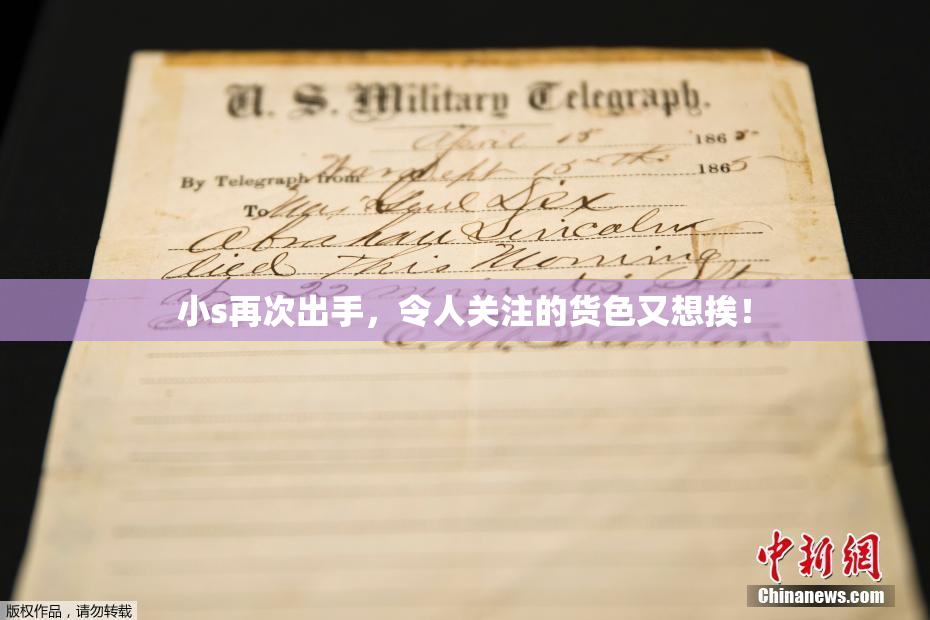 U. S. Military Telegraph.
April 15 1865
By Telegraph from War Dept 15th 1865
To Maj Genl Dix
Abraham Lincoln
died This Morning
at 22 minutes after
小s再次出手，令人关注的货色又想挨！
中新网
Chinanews.com
版权作品，请勿转载